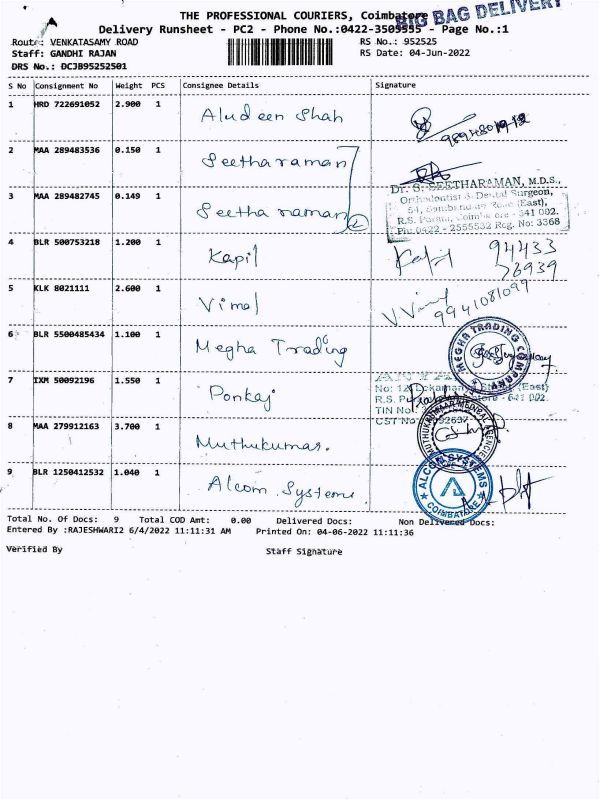 THE PROFESSIONAL COURIERS, Coimbatore
BIG BAG DELIVERY
Delivery Runsheet - PC2 - Phone No.:0422-3509595 - Page No.:1
Route: VENKATASAMY ROAD RS No.: 952525
Staff: GANDHI RAJAN RS Date: 04-Jun-2022
DRS No.: DCJB95252501
S No Consignment No Weight PCS Consignee Details Signature
1 HRD 722691052 2.900 1 Aludeen Shah
2 MAA 289483536 0.150 1 Seetharaman
3 MAA 289482745 0.149 1 Seetharaman
Dr. S. SEETHARAMAN, M.D.S.,
Orthodontist & Dental Surgeon,
(East),
R.S. Puram, Coimbatore - 641 002.
Ph: 0422 - 2555532 Reg. No: 3368
4 BLR 500753218 1.200 1 Kapil Kapil 94433
76939
5 KLK 8021111 2.600 1 Vimal V. Vimal 9941081099
6 BLR 5500485434 1.100 1 Megha Trading
MEGHA TRADING COMPANY
7 IXM 50092196 1.550 1 Pankaj
No: 12, Street (East)
R.S. Puram, Coimbatore - 641 002.
TIN No
CST No
8 MAA 279912163 3.700 1 Muthukumar.
MUTHUKUMAAR MEDICAL AGENCIES
9 BLR 1250412532 1.040 1 Alcom Systems.
ALCOM SYSTEMS
COIMBATORE
Total No. Of Docs: 9 Total COD Amt: 0.00 Delivered Docs: Non Delivered Docs:
Entered By :RAJESHWARI2 6/4/2022 11:11:31 AM Printed On: 04-06-2022 11:11:36
Verified By Staff Signature